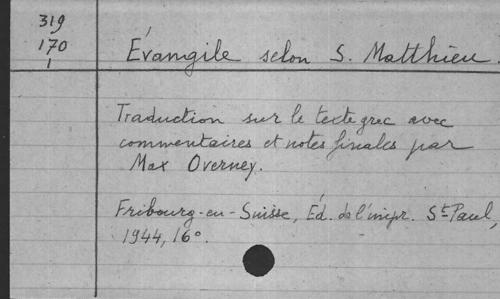 319
170
1
Évangile selon S. Matthieu.
Traduction sur le texte grec avec
commentaires et notes finales par
Max Overney.
Fribourg-en-Suisse, Éd. de l'impr. St-Paul,
1944, 16°.